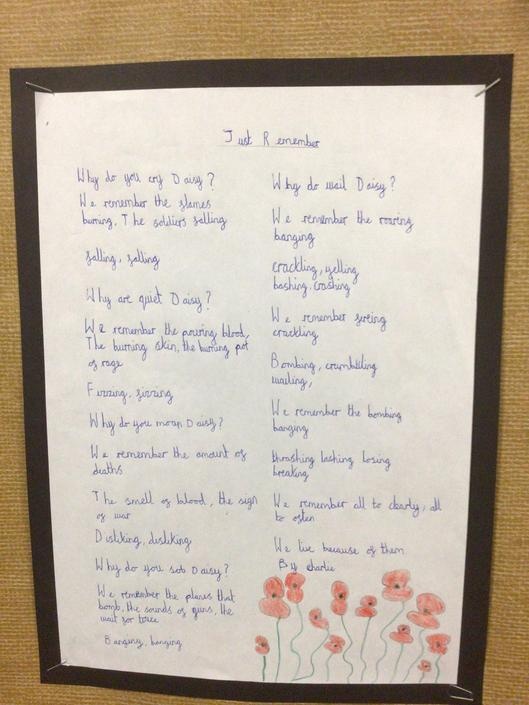 Just Remember
Why do you cry Daisy?
We remember the flames
burning, The soldiers falling
falling, falling
Why are quiet Daisy?
We remember the pouring blood,
The burning skin, the burning pot
of rage
Fizzing, sizzing
Why do you moan Daisy?
We remember the amount of
deaths
The smell of blood, the sign
of war
Disliking, disliking
Why do you sob Daisy?
We remember the planes that
bomb, the sounds of guns, the
wait for truce
Banging, banging
Why do wail Daisy?
We remember the roaring
banging
crackling, yelling
bashing, crashing
We remember fireing
crackling
Bombing, crumbuling
wailing,
We remember the bombing
banging
thrashing lashing losing
breaking
We remember all to clearly, all
to often
We live because of them
By Charlie